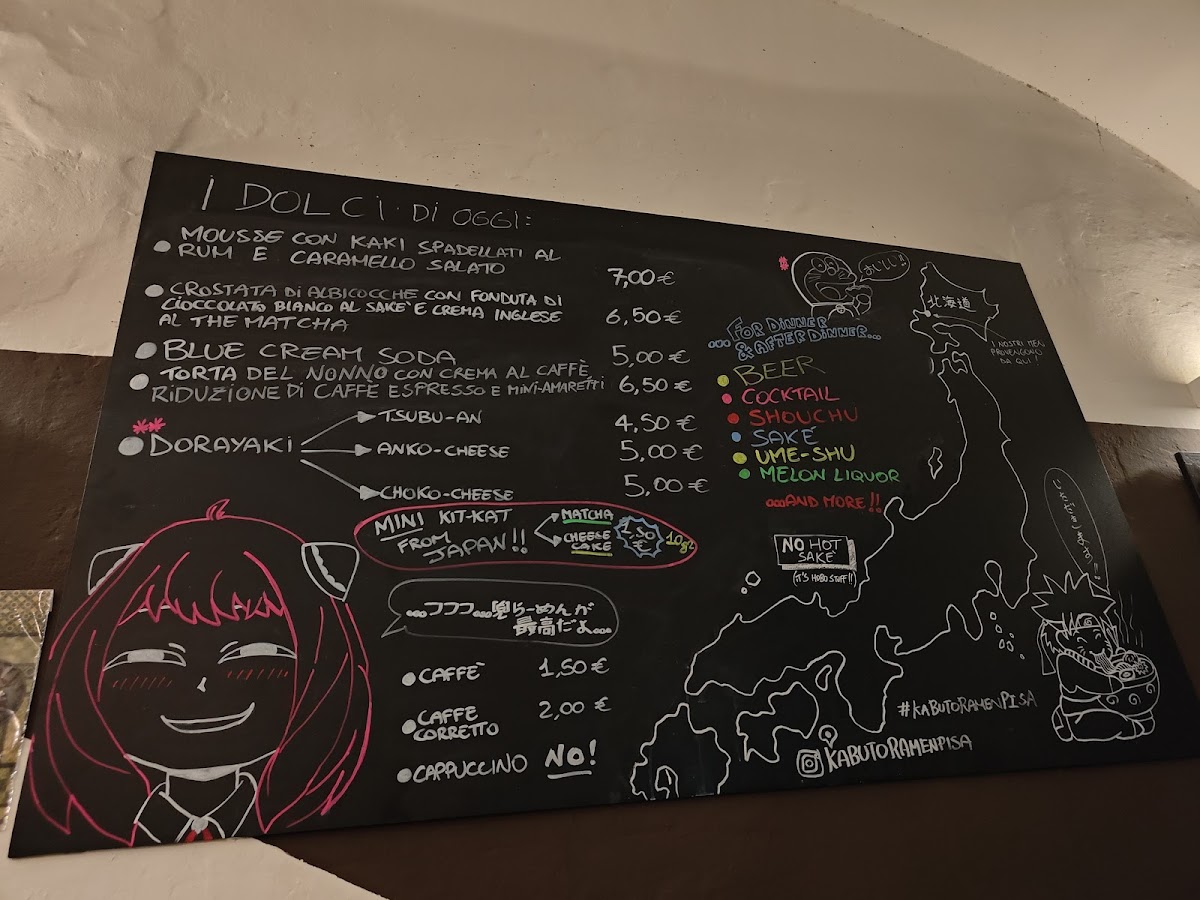 I DOLCI DI OGGI:
MOUSSE CON KAKI SPADELLATI AL
RUM E CARAMELLO SALATO
7,00 €
CROSTATA DI ALBICOCCHE CON FONDUTA DI
CIOCCOLATO BIANCO AL SAKÈ E CREMA INGLESE
AL THE MATCHA
6,50 €
BLUE CREAM SODA
5,00 €
TORTA DEL NONNO CON CREMA AL CAFFÈ,
RIDUZIONE DI CAFFÈ ESPRESSO E MINI-AMARETTI
6,50 €
**
DORAYAKI
TSUBU-AN
4,50 €
ANKO-CHEESE
5,00 €
CHOKO-CHEESE
5,00 €
MINI KIT-KAT
FROM
JAPAN!!
MATCHA
CHEESE
CAKE
1,50
€
...フフフ...兜らーめんが
最高だよ...
CAFFÈ 1,50 €
CAFFÈ
CORRETTO
2,00 €
CAPPUCCINO NO!
おいしい!!
...FOR DINNER
& AFTER DINNER...
BEER
COCKTAIL
SHOUCHU
SAKÉ
UME-SHU
MELON LIQUOR
...AND MORE!!
NO HOT
SAKÉ
(IT'S HOBO STUFF!!)
北海道
I NOSTRI MEN
PROVENGONO
DA QUI!
#KABUTORAMENPISA
KABUTORAMENPISA